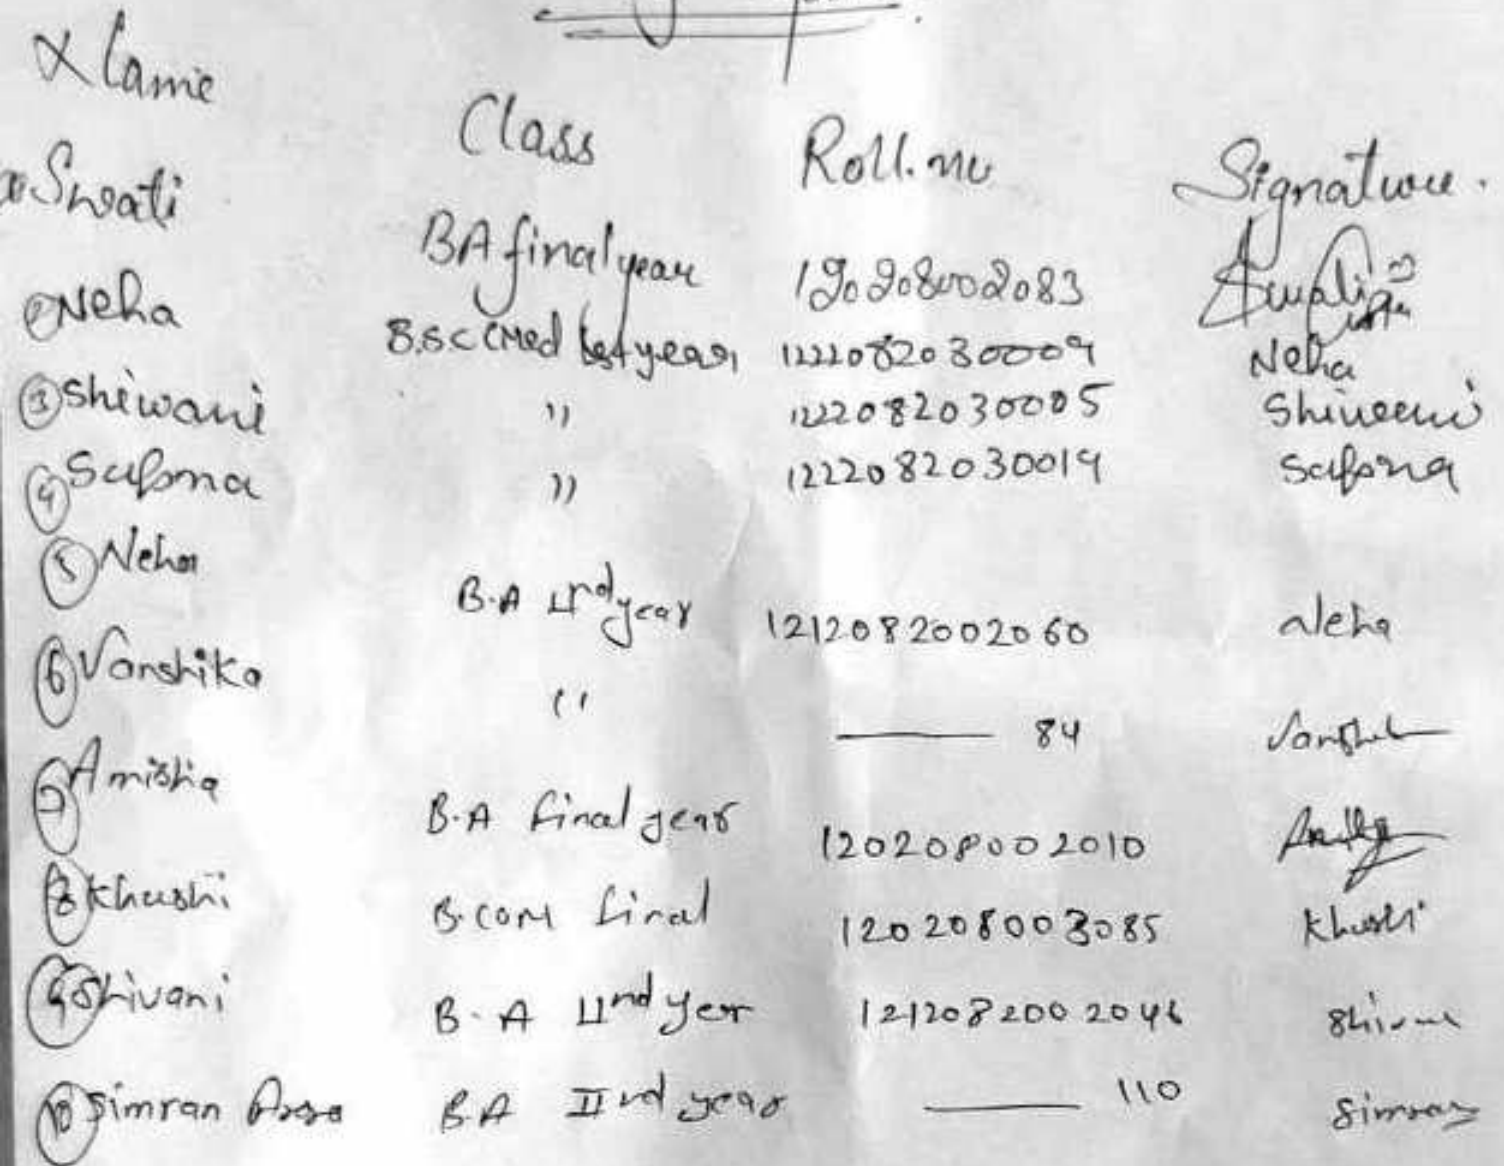 Name Class Roll. no Signature.
Swati BA final year 120208002083 Swati
② Neha B.Sc (Med 1st year) 1222082030009 Neha
③ Shiwani " 1222082030005 Shiwani
④ Sapna " 1222082030019 Sapna
⑤ Neha B.A IInd year 1212082002060 Neha
⑥ Vanshika " —— 84
⑦ Amisha B.A final year 120208002010
⑧ Khushi B.COM final 120208003085 Khushi
⑨ Shivani B.A IInd yer 1212082002046 Shivani
⑩ Simran B.A IInd year —— 110 Simran